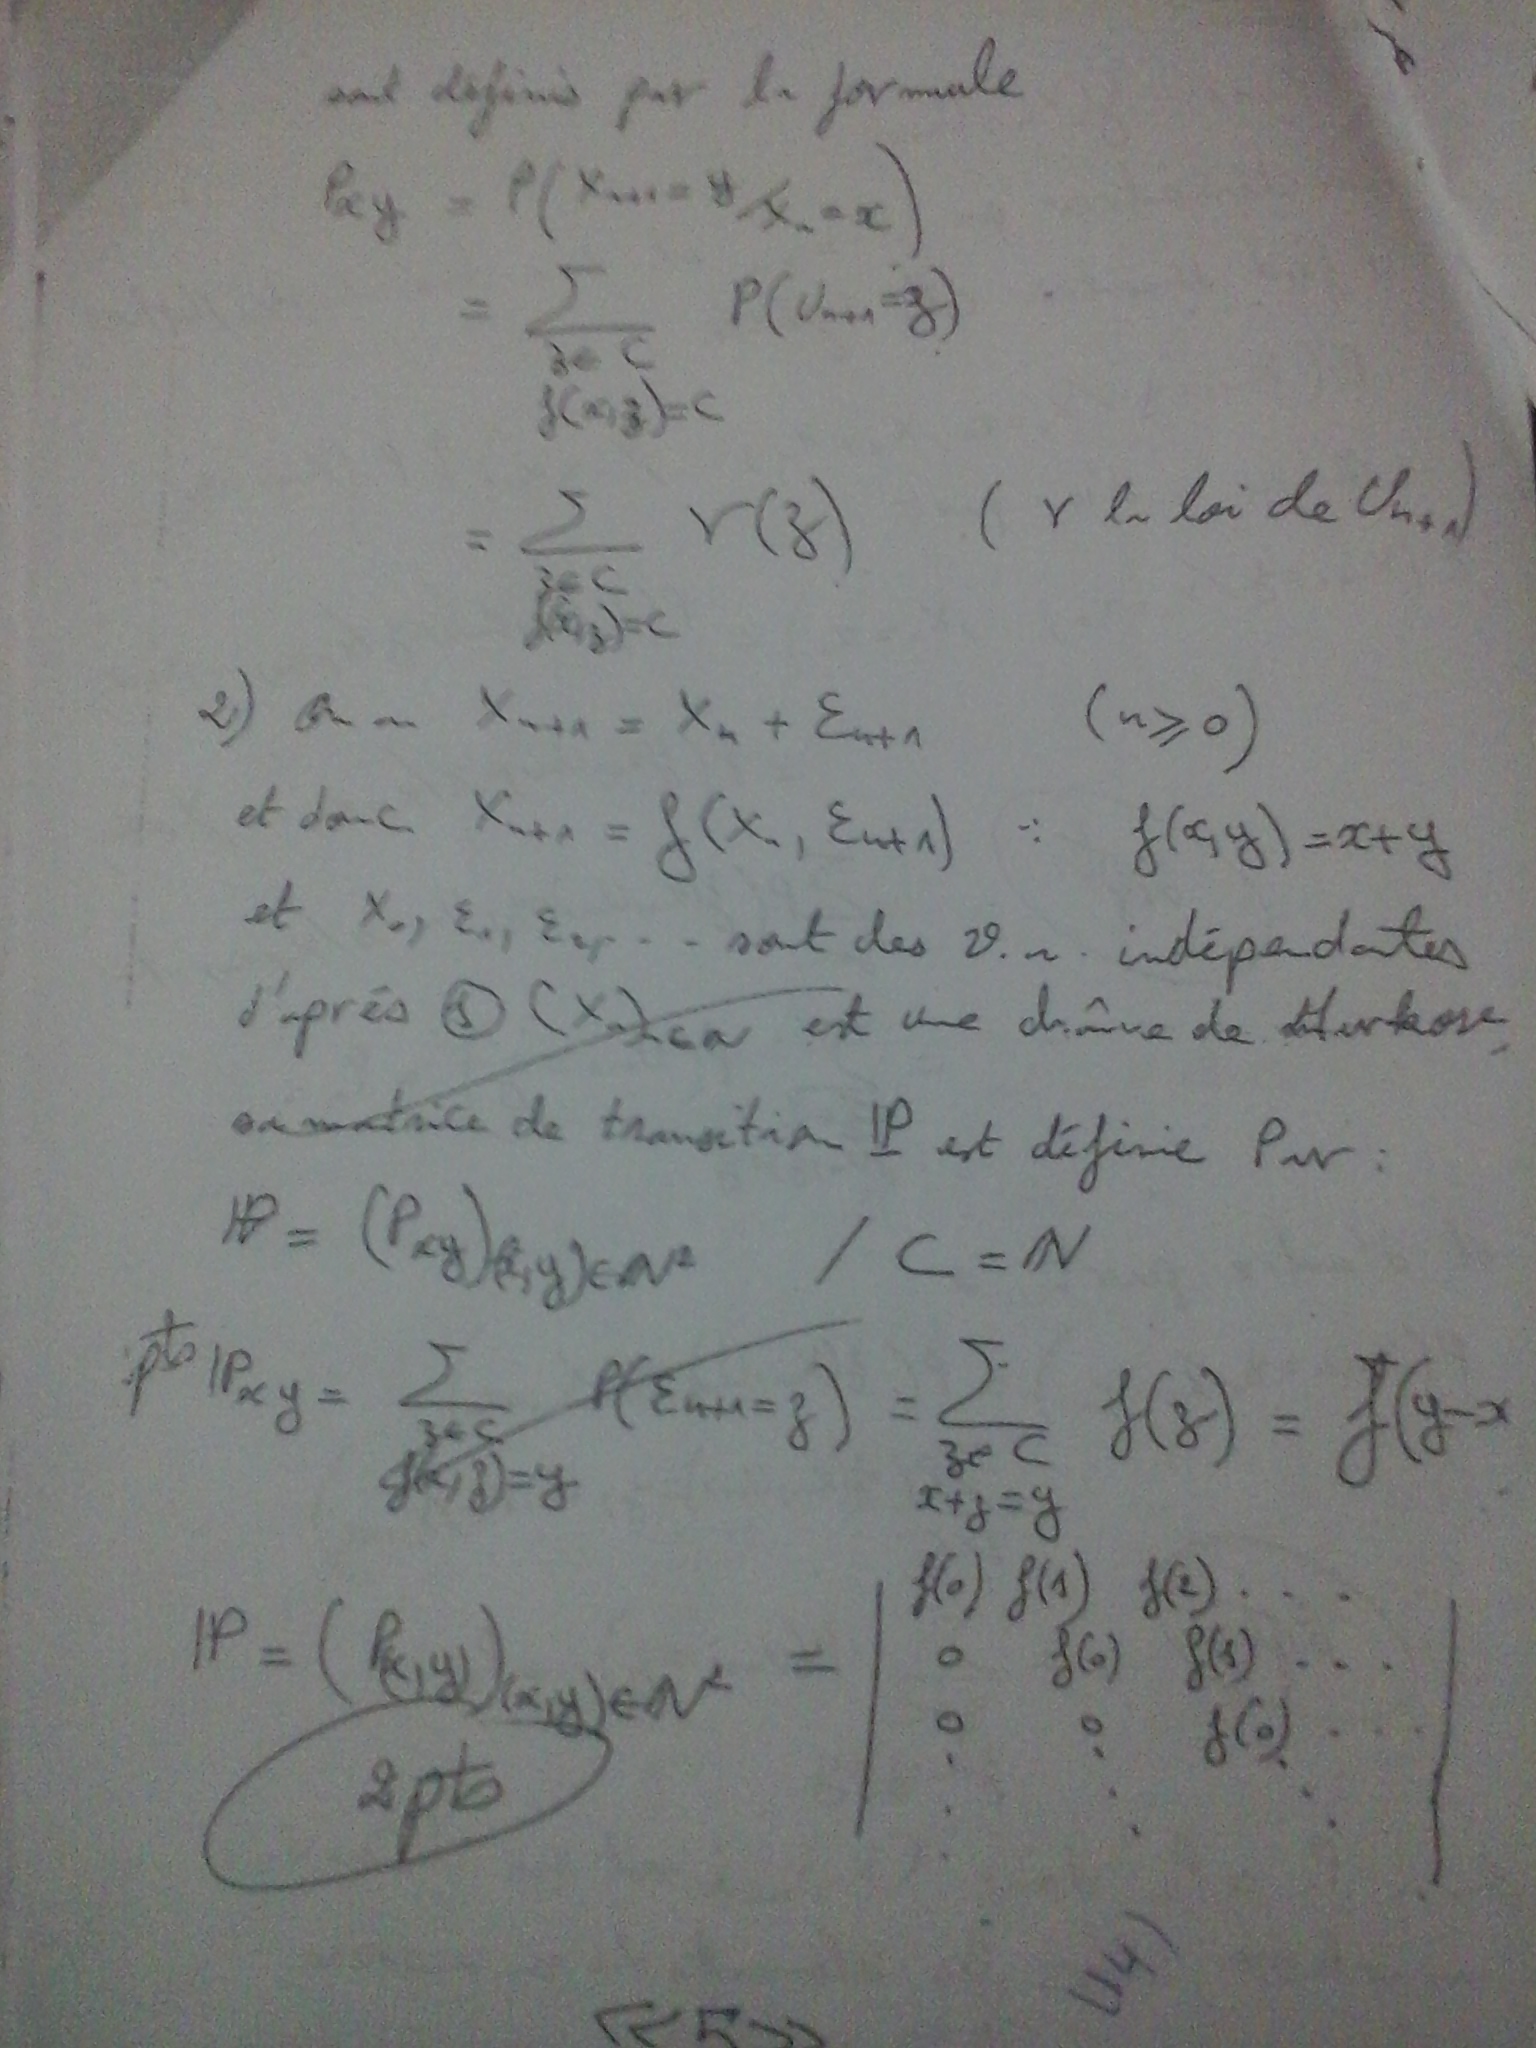 sont définis par la formule
Pxy = P(Xn+1 = y / Xn = x)
= Σ P(Un+1 = z)
z ∈ C
f(x,z) = C
= Σ γ(z) ( γ la loi de Un+1)
z ∈ C
f(x,z) = C
2) on a Xn+1 = Xn + Ɛn+1 (n ≥ 0)
et donc Xn+1 = f(Xn, Ɛn+1) : f(x,y) = x+y
et X0, Ɛ1, Ɛ2, ... sont des v.a. indépendantes
d'après ① (Xn)n∈N est une chaîne de Markov,
sa matrice de transition IP est définie Par :
IP = (Pxy)(x,y)∈N² / C = N
pts IPxy = Σ P(Ɛn+1 = z) = Σ f(z) = f(y-x
z ∈ C z ∈ C
f(x,z) = y x+z = y
f(0) f(1) f(2) . . .
IP = (P(x,y))(x,y)∈N² = 0 f(0) f(1) . . .
0 0 f(0) . . .
2pts
(14)
<<5>>